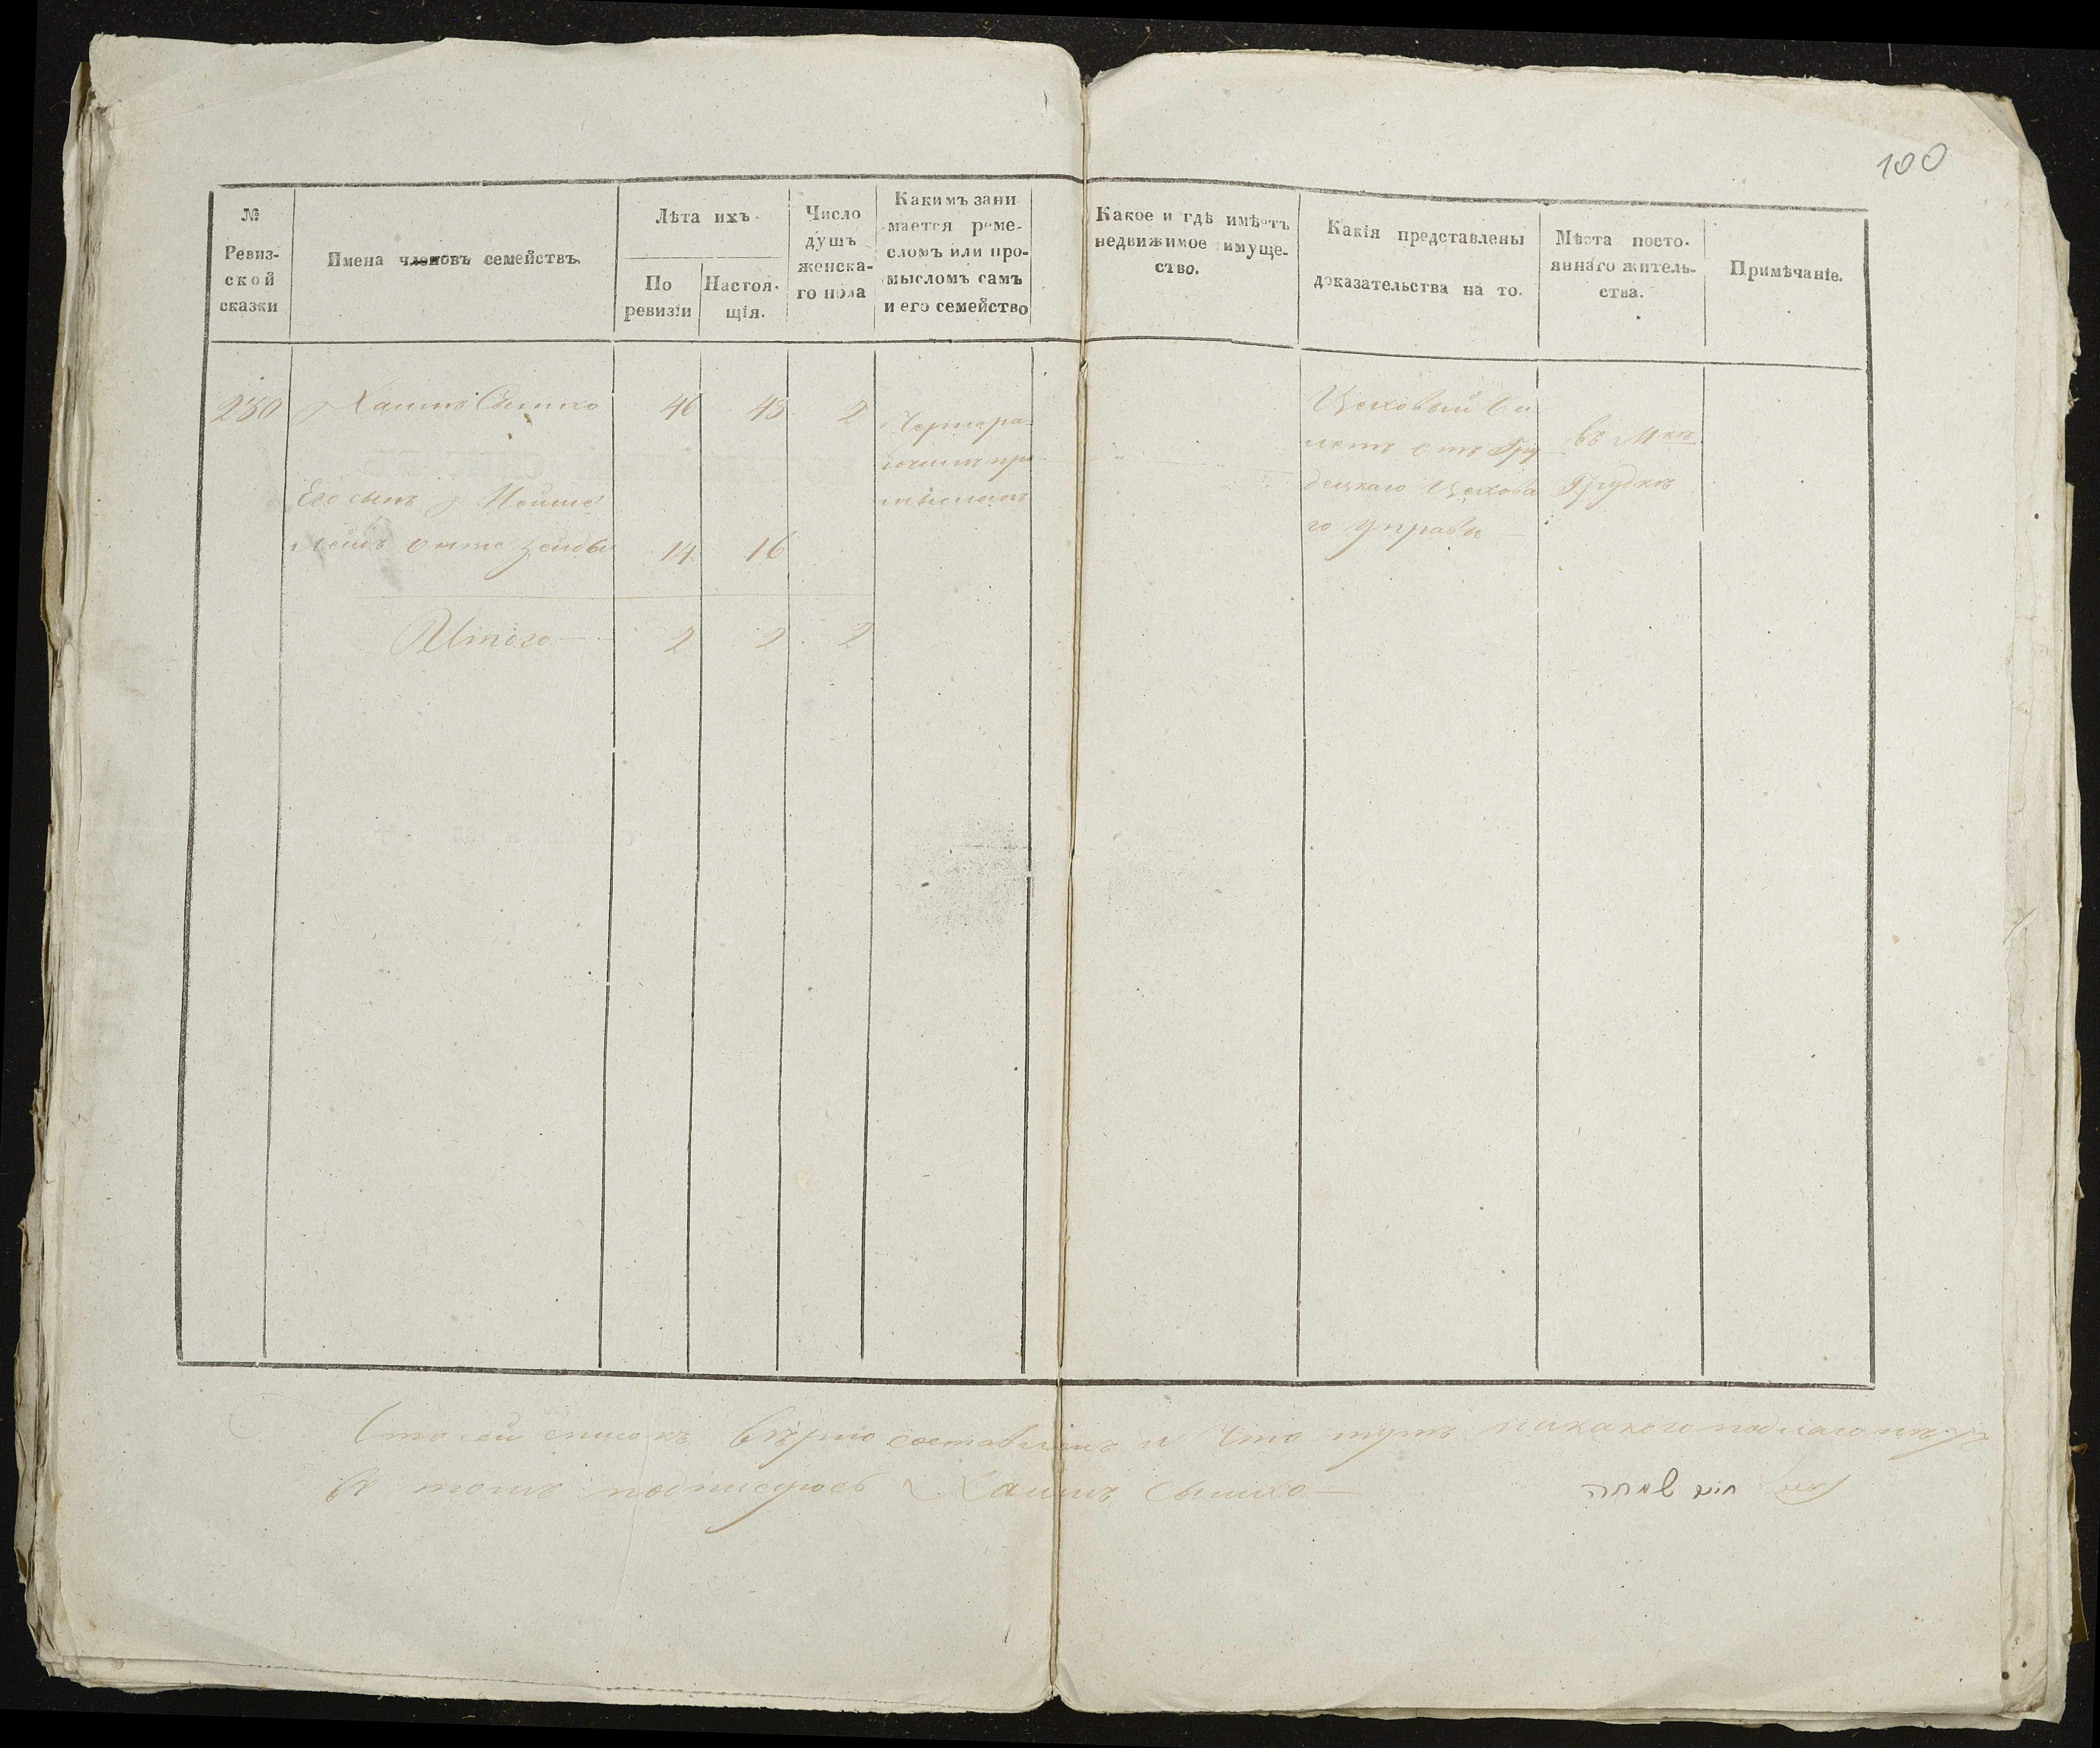 100
№
Ревиз-
ской
сказки
Имена членовъ семействъ.
Лѣта ихъ.
По
ревизіи
Настоя-
щія.
Число
душъ
женска-
го пола
Какимъ зани
мается реме-
сломъ или про-
мысломъ самъ
и его семейство
Какое и гдѣ имѣетъ
недвижимое имуще-
ство.
Какія представлены
доказательства на то.
Мѣста посто-
яннаго житель-
ства.
Примѣчаніе.
Хаимъ 46 2
Чернора-
бочимъ про-
мысломъ
Цеховый би
летъ отъ Гру
децкаго Цехова
го управы
въ Мкѣ
Грудкѣ
Его сынъ
14 16
Итого 2 2 2
сей списокъ вѣрно составленъ и что тутъ никакого
В томъ подписуюсь Хаимъ
חיים שמחה